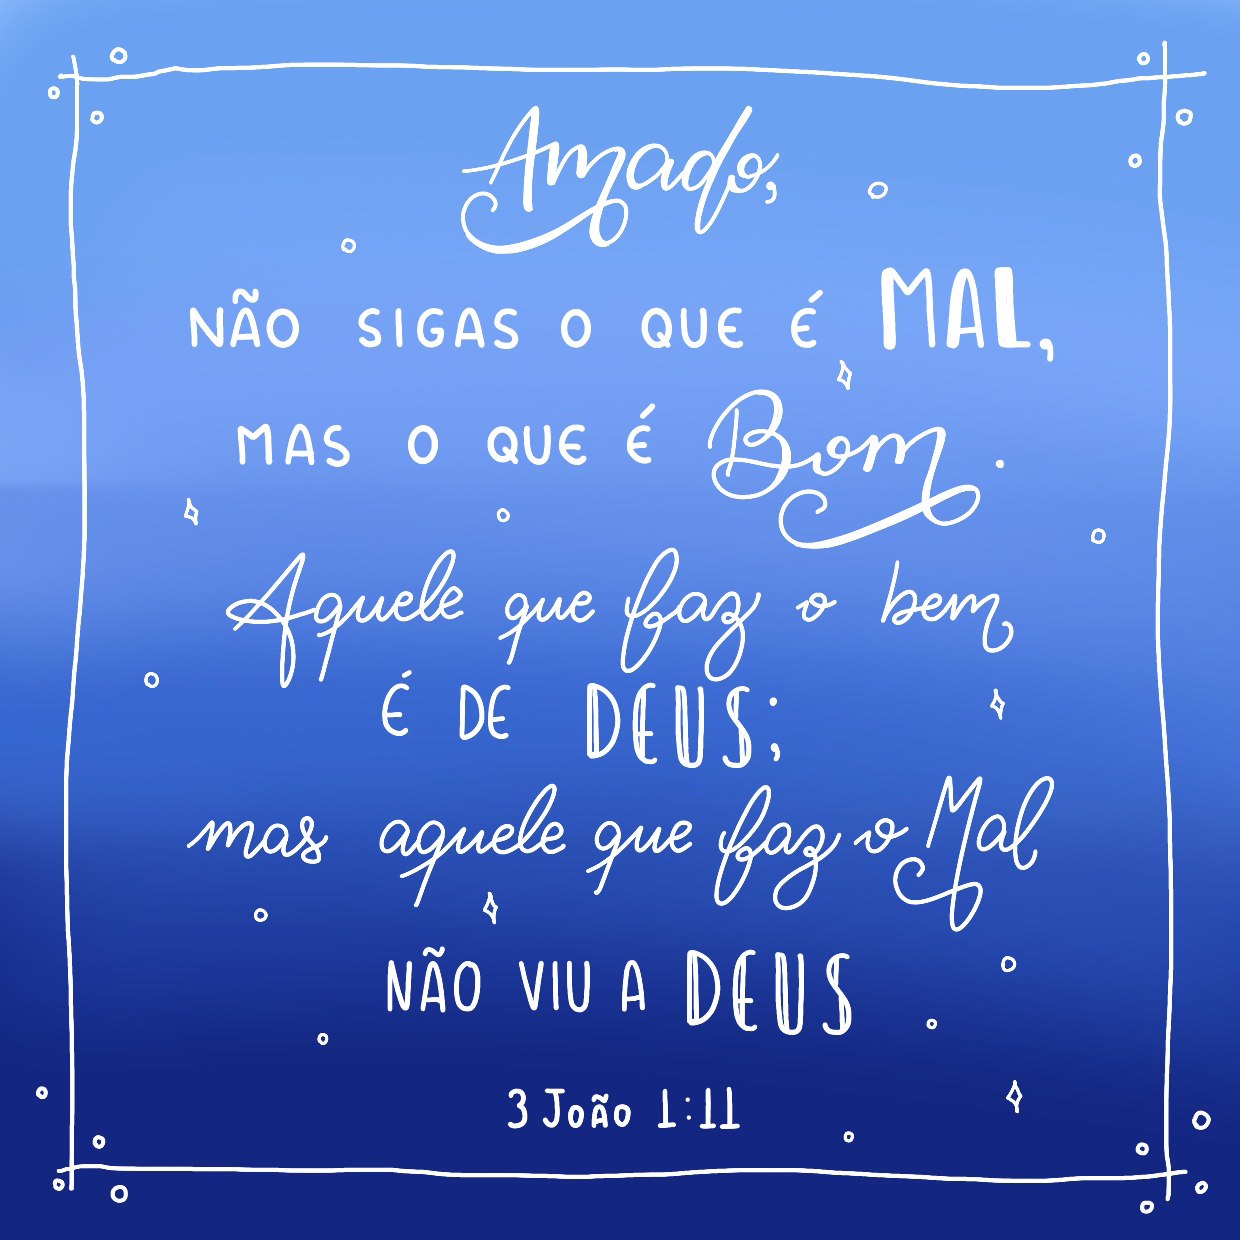 Amado,
NÃO SIGAS O QUE É MAL,
MAS O QUE É Bom.
Aquele que faz o bem
É DE DEUS;
mas aquele que faz o Mal
NÃO VIU A DEUS
3 João 1:11